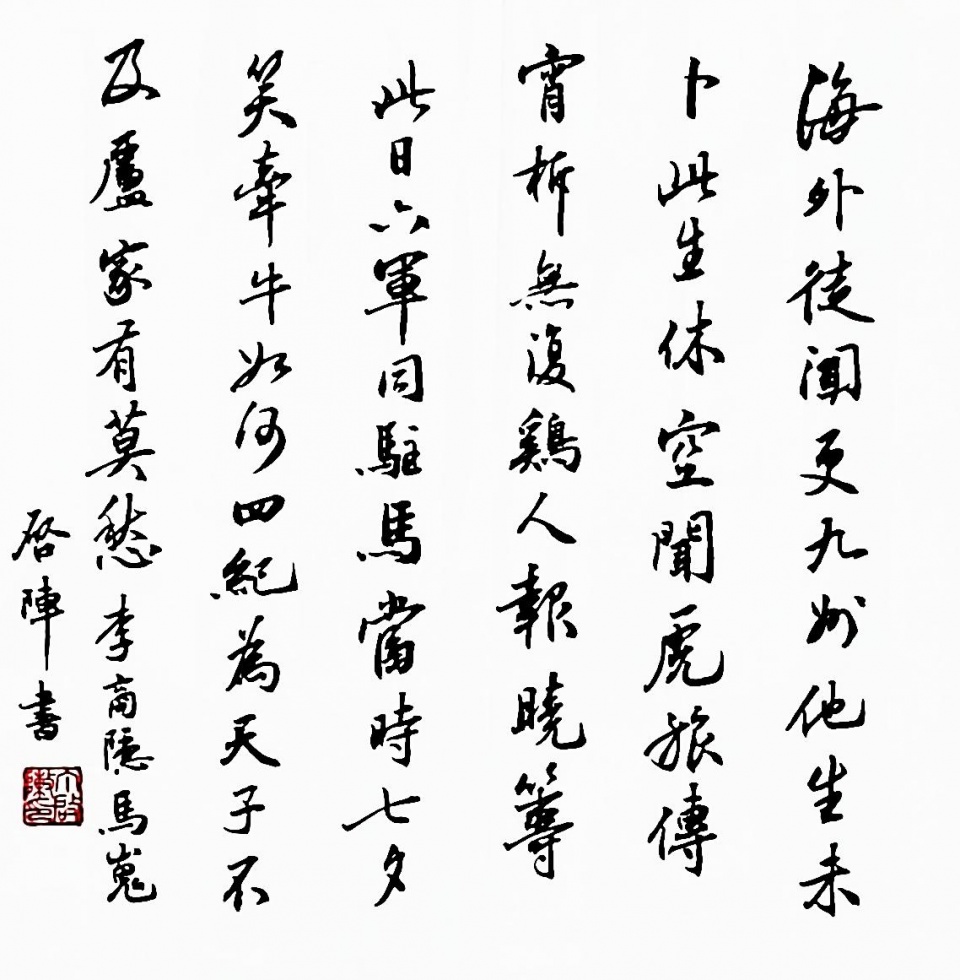 海外徒聞更九州他生未
卜此生休空聞虎旅傳
宵柝無復鷄人報曉籌
此日六軍同駐馬當時七夕
笑牽牛如何四紀為天子不
及盧家有莫愁 李商隱馬嵬
启陣書